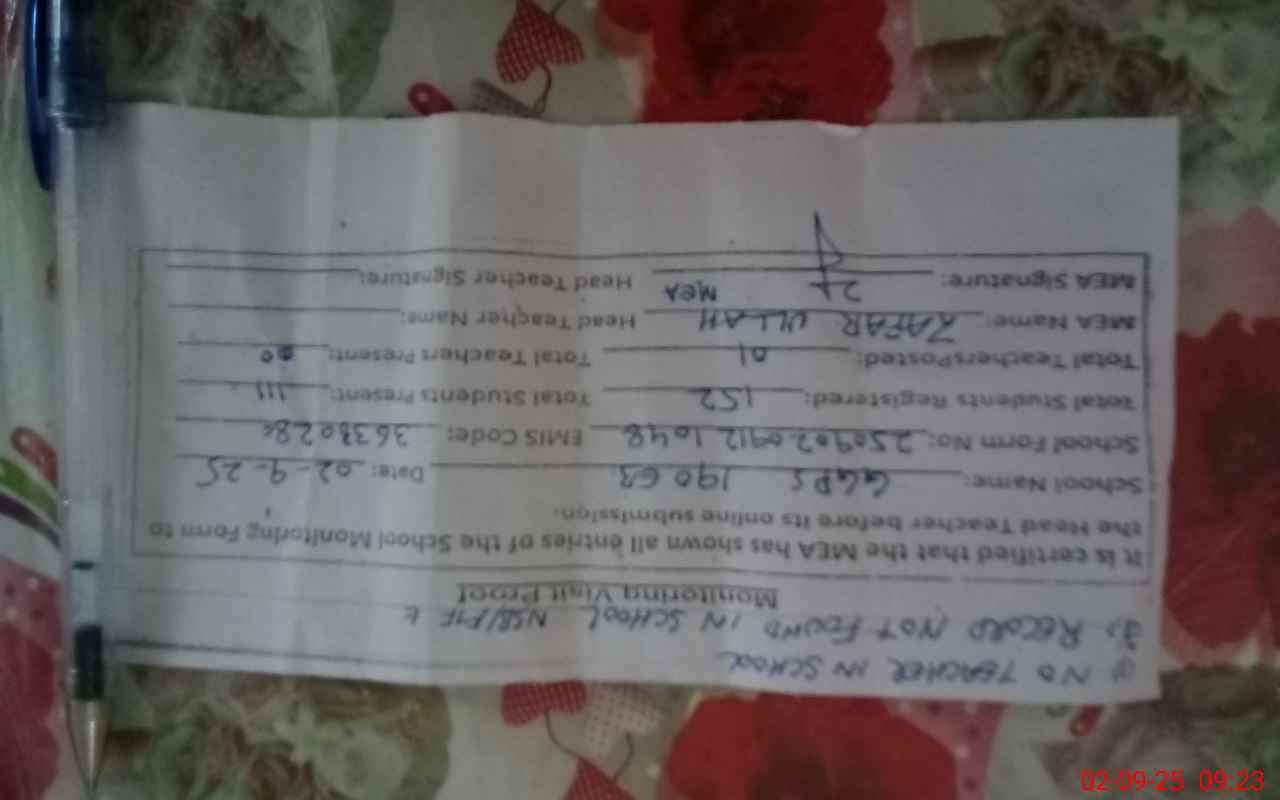 ① NO TEACHER IN SCHOOL
2) RECORD NOT FOUND IN SCHOOL NSB/PTF
Monitoring Visit Proof
It is certified that the MEA has shown all entries of the School Monitoring Form to
the Head Teacher before its online submission.
School Name: GGPS 190 GB Date: 02-9-25
School Form No: 2509020912 1048 EMIS Code:
Total Students Registered: 152 Total Students Present: 111
Total TeachersPosted: 01 Total Teachers Present: 00
MEA Name: ZAFAR ULLAH Head Teacher Name:
MEA Signature: MEA Head Teacher Signature:
02-09-25 09:23